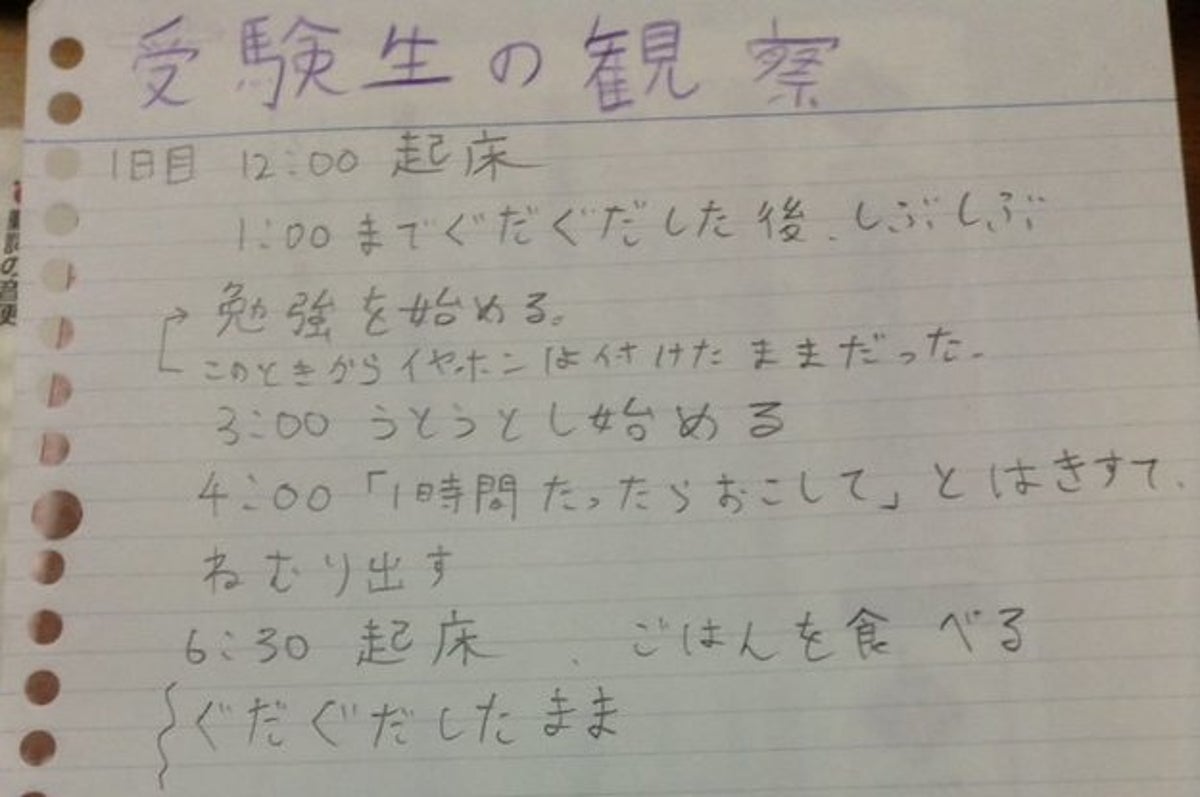 受験生の観察
1日目 12:00 起床
1:00 までぐだぐだした後、しぶしぶ
勉強を始める。
このときからイヤホンは付けたままだった。
3:00 うとうとし始める
4:00 「1時間たったらおこして」とはきすて、
ねむり出す
6:30 起床、ごはんを食べる
ぐだぐだしたまま